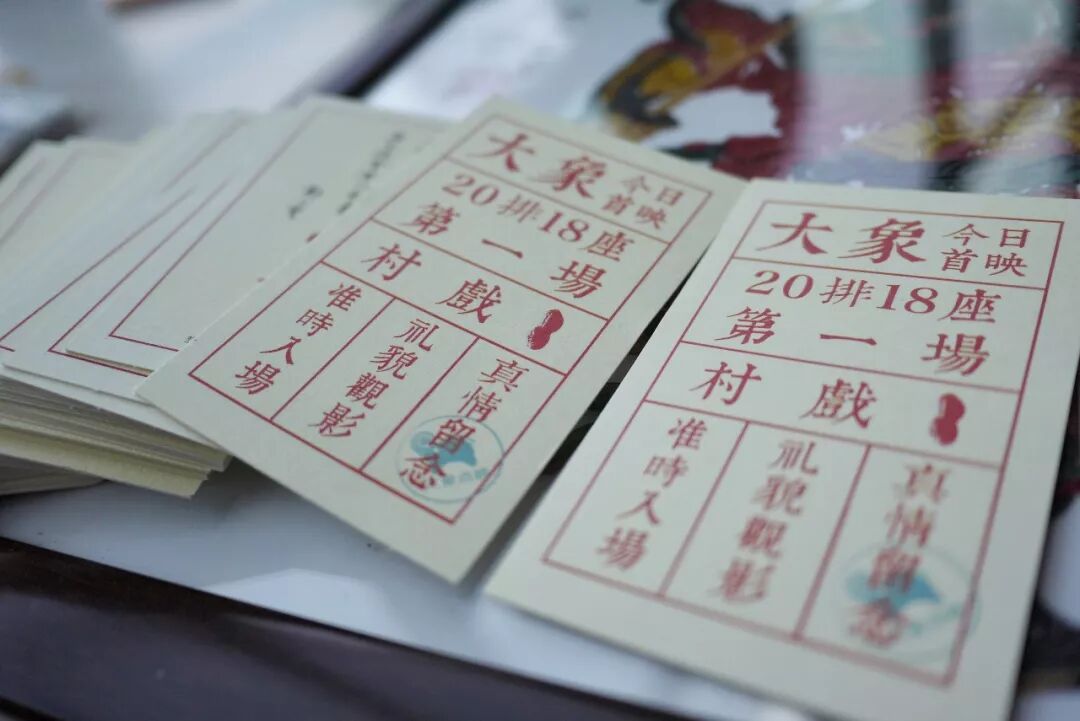 大象
今日
首映
20排18座
第一場
村戲
准時入場
礼貌觀影
真情留念
大象
今日
首映
20排18座
第一場
村戲
准時入場
礼貌觀影
真情留念